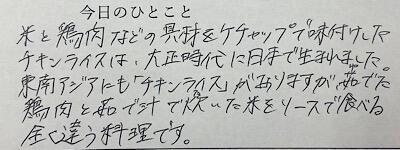 今日のひとこと
米と鶏肉などの具材をケチャップで味付けした
チキンライスは、大正時代に日本で生まれました。
東南アジアにも「チキンライス」がありますが、茹でた
鶏肉と茹で汁で炊いた米をソースで食べる
全く違う料理です。